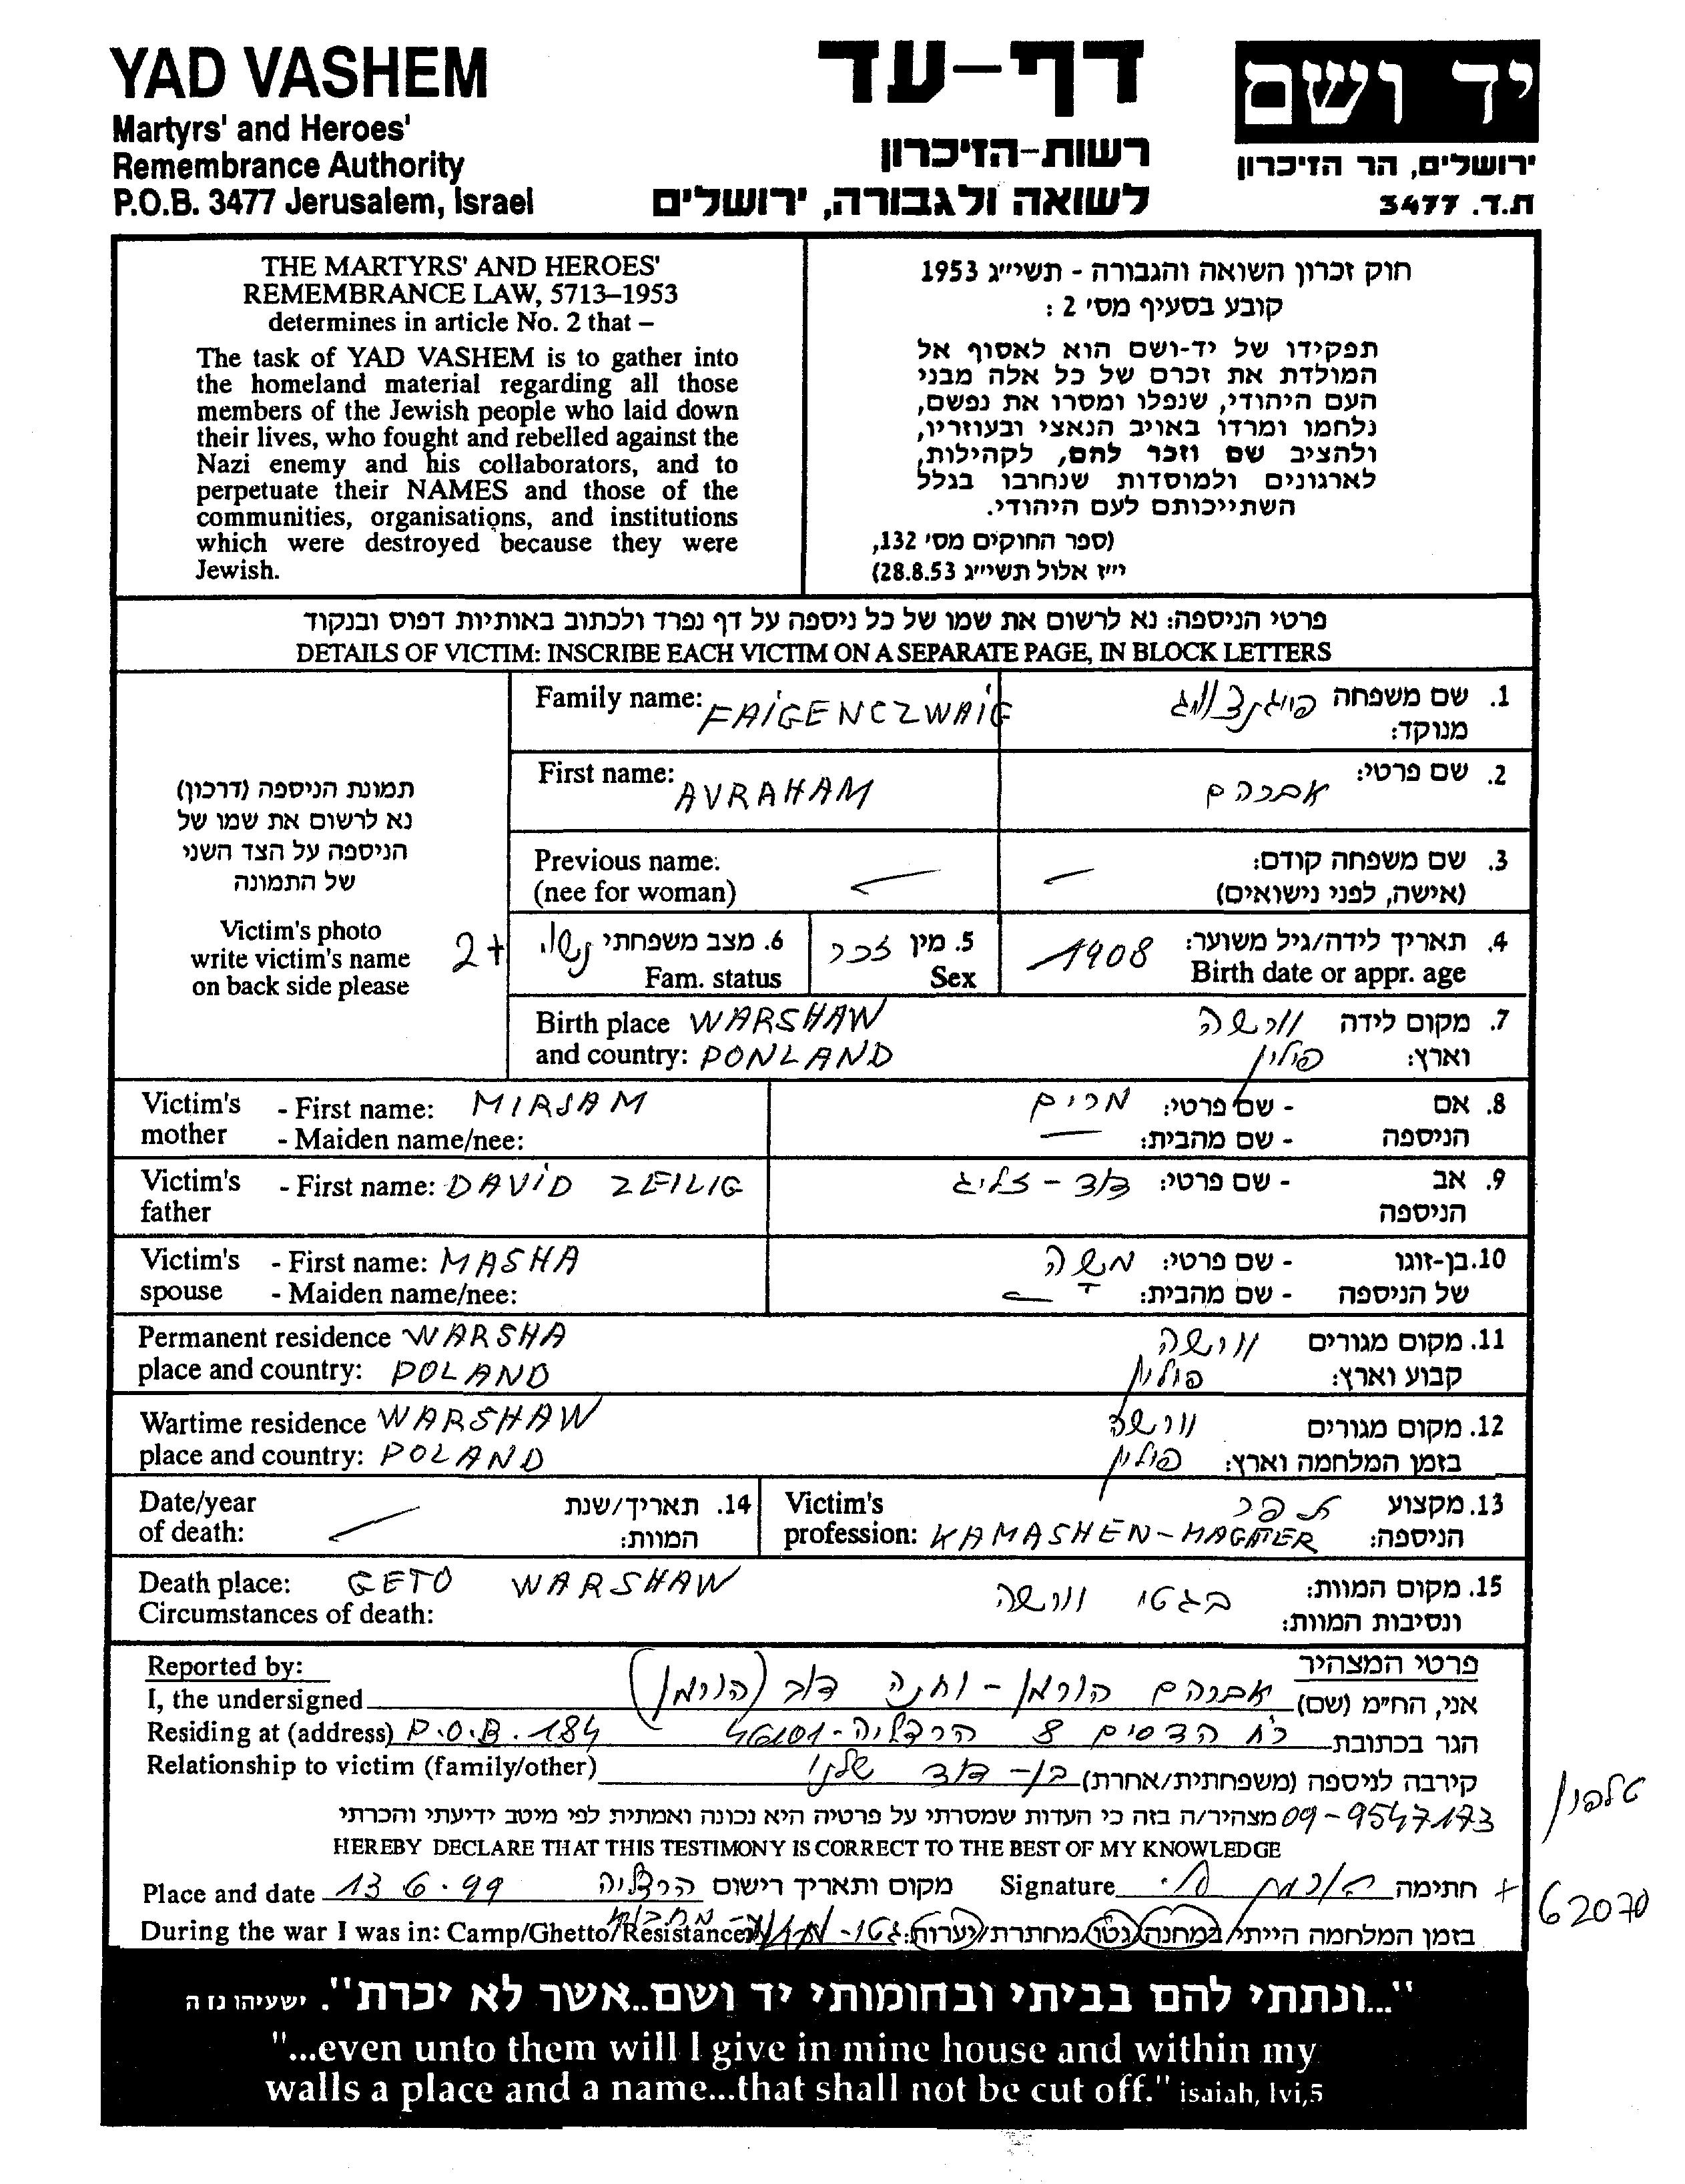 YAD VASHEM
Martyrs' and Heroes'
Remembrance Authority
P.O.B. 3477 Jerusalem, Israel
דף-עד
רשות-הזיכרון
לשואה ולגבורה, ירושלים
יד ושם
ירושלים, הר הזיכרון
ת.ד. 3477
THE MARTYRS' AND HEROES'
REMEMBRANCE LAW, 5713–1953
determines in article No. 2 that –
The task of YAD VASHEM is to gather into
the homeland material regarding all those
members of the Jewish people who laid down
their lives, who fought and rebelled against the
Nazi enemy and his collaborators, and to
perpetuate their NAMES and those of the
communities, organisations, and institutions
which were destroyed because they were
Jewish.
חוק זכרון השואה והגבורה - תשי״ג 1953
קובע בסעיף מס' 2 :
תפקידו של יד-ושם הוא לאסוף אל
המולדת את זכרם של כל אלה מבני
העם היהודי, שנפלו ומסרו את נפשם,
נלחמו ומרדו באויב הנאצי ובעוזריו,
ולהציב שם וזכר להם, לקהילות,
לארגונים ולמוסדות שנחרבו בגלל
השתייכותם לעם היהודי.
(ספר החוקים מס' 132,
י״ז אלול תשי״ג 28.8.53)
פרטי הניספה: נא לרשום את שמו של כל ניספה על דף נפרד ולכתוב באותיות דפוס ובנקוד
DETAILS OF VICTIM: INSCRIBE EACH VICTIM ON A SEPARATE PAGE, IN BLOCK LETTERS
תמונת הניספה (דרכון)
נא לרשום את שמו של
הניספה על הצד השני
של התמונה
Victim's photo
write victim's name
on back side please
Family name: FAIGENCZWAIG
1. שם משפחה
מנוקד:
First name: AVRAHAM
2. שם פרטי: אברהם
Previous name:
(nee for woman)
3. שם משפחה קודם:
(אישה, לפני נישואים)
4. תאריך לידה/גיל משוער: 1908
Birth date or appr. age
5. מין זכר
Sex
6. מצב משפחתי נשוי 2+
Fam. status
Birth place WARSHAW
and country: PONLAND
7. מקום לידה וורשה
וארץ: פולין
Victim's mother - First name: MIRJAM
- Maiden name/nee:
8. אם הניספה - שם פרטי: מרים
- שם מהבית: —
Victim's father - First name: DAVID ZEILIG
9. אב הניספה - שם פרטי: דוד - זליג
Victim's spouse - First name: MASHA
- Maiden name/nee:
10. בן-זוגו של הניספה - שם פרטי: משה
- שם מהבית:
Permanent residence WARSHA
place and country: POLAND
11. מקום מגורים וורשה
קבוע וארץ: פולין
Wartime residence WARSHAW
place and country: POLAND
12. מקום מגורים וורשה
בזמן המלחמה וארץ: פולין
Date/year
of death:
14. תאריך/שנת
המוות:
Victim's
profession: KAMASHEN-MAGHER
13. מקצוע תפר
הניספה:
Death place: GETO WARSHAW
Circumstances of death:
15. מקום המוות: בגטו וורשה
ונסיבות המוות:
Reported by:
פרטי המצהיר
I, the undersigned
אני, הח״מ (שם) אברהם הורמן - וחנה דוב (הורמן)
Residing at (address) P.O.B. 184
הגר בכתובת כ״ח הדסים 8 הרצליה-46101
Relationship to victim (family/other)
קירבה לניספה (משפחתית/אחרת) בן-דוד שלנו
טלפון
09-9547173 מצהיר/ה בזה כי העדות שמסרתי על פרטיה היא נכונה ואמתית לפי מיטב ידיעתי והכרתי
HEREBY DECLARE THAT THIS TESTIMONY IS CORRECT TO THE BEST OF MY KNOWLEDGE
Place and date 13.6.99 מקום ותאריך רישום הרצליה
Signature חתימה
+62070
During the war I was in: Camp/Ghetto/Resistance
בזמן המלחמה הייתי/ במחנה/גטו/מחתרת/יערות:
"...ונתתי להם בביתי ובחומותי יד ושם..אשר לא יכרת". ישעיהו נו ה
"...even unto them will I give in mine house and within my
walls a place and a name...that shall not be cut off." isaiah, lvi,5